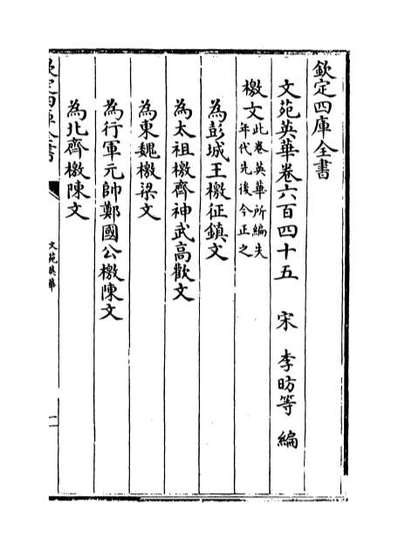 欽定四庫全書
文苑英華卷六百四十五 宋 李昉等 編
檄文此卷英華所編失
年代先後今正之
為彭城王檄征鎮文
為太祖檄齊神武高歡文
為東魏檄梁文
為行軍元帥鄭國公檄陳文
為北齊檄陳文
欽定四庫全書
文苑英華